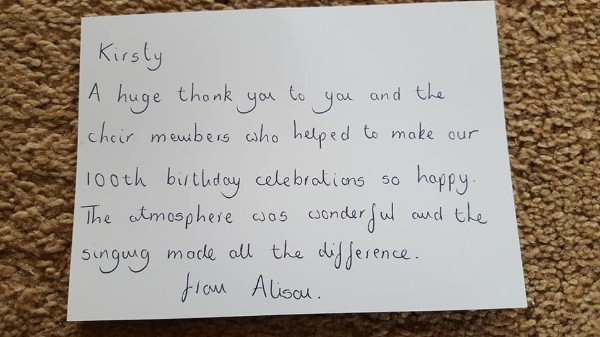 Kirsty
A huge thank you to you and the
choir members who helped to make our
100th birthday celebrations so happy.
The atmosphere was wonderful and the
singing made all the difference.
from Alison.